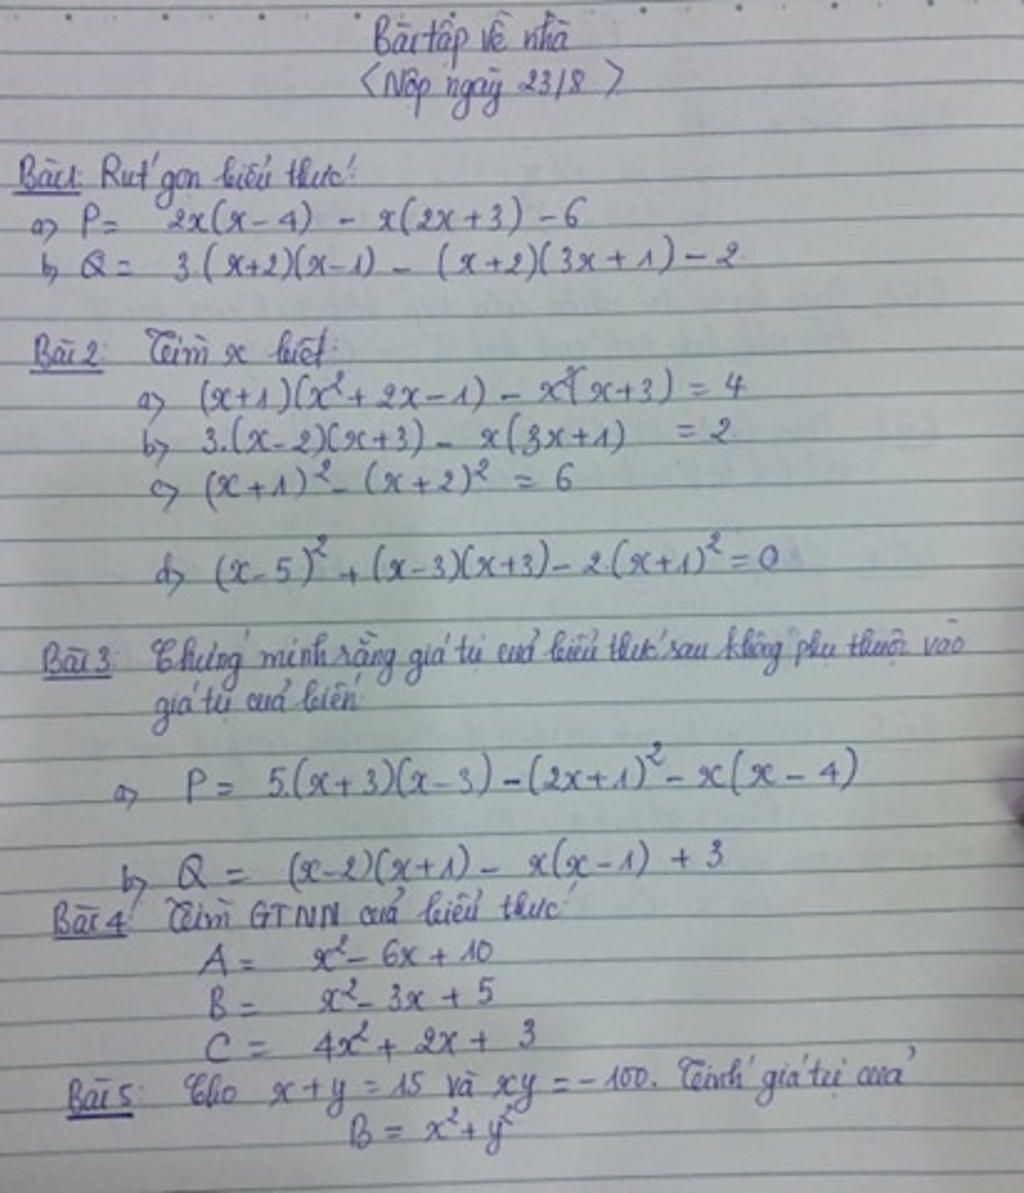 Bài tập về nhà
(Nộp ngày 23/8)
Bài 1: Rút gọn biểu thức:
a) P = 2x(x-4) - x(2x+3) - 6
b) Q = 3(x+2)(x-1) - (x+2)(3x+1) - 2
Bài 2: Tìm x biết:
a) (x+1)(x²+2x-1) - x²(x+3) = 4
b) 3.(x-2)(x+3) - x(3x+1) = 2
c) (x+1)² - (x+2)² = 6
d) (x-5)² + (x-3)(x+3) - 2(x+1)² = 0
Bài 3: Chứng minh rằng giá trị của biểu thức sau không phụ thuộc vào
giá trị của biến
a) P = 5.(x+3)(x-3) - (2x+1)² - x(x-4)
b) Q = (x-2)(x+1) - x(x-1) + 3
Bài 4: Tìm GTNN của biểu thức
A = x² - 6x + 10
B = x² - 3x + 5
C = 4x² + 2x + 3
Bài 5: Cho x+y = 15 và xy = -100. Tính giá trị của
B = x² + y²